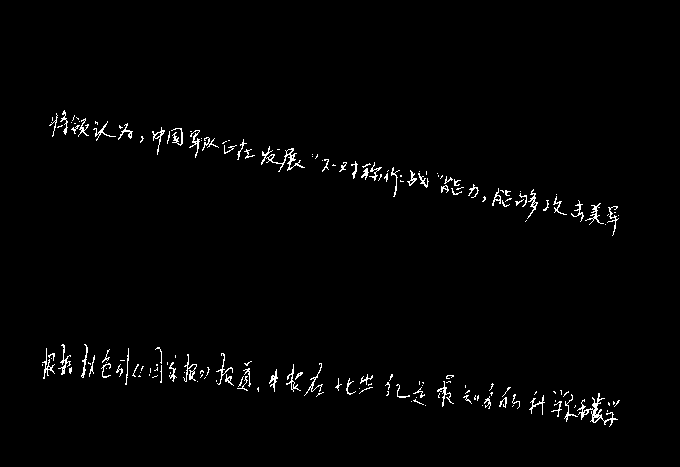 将领认为，中国军队正在发展“不对称作战”能力，能够攻击美军
根据以色列《国土报》报道，牛顿在十七世纪是最知名的科学和数学